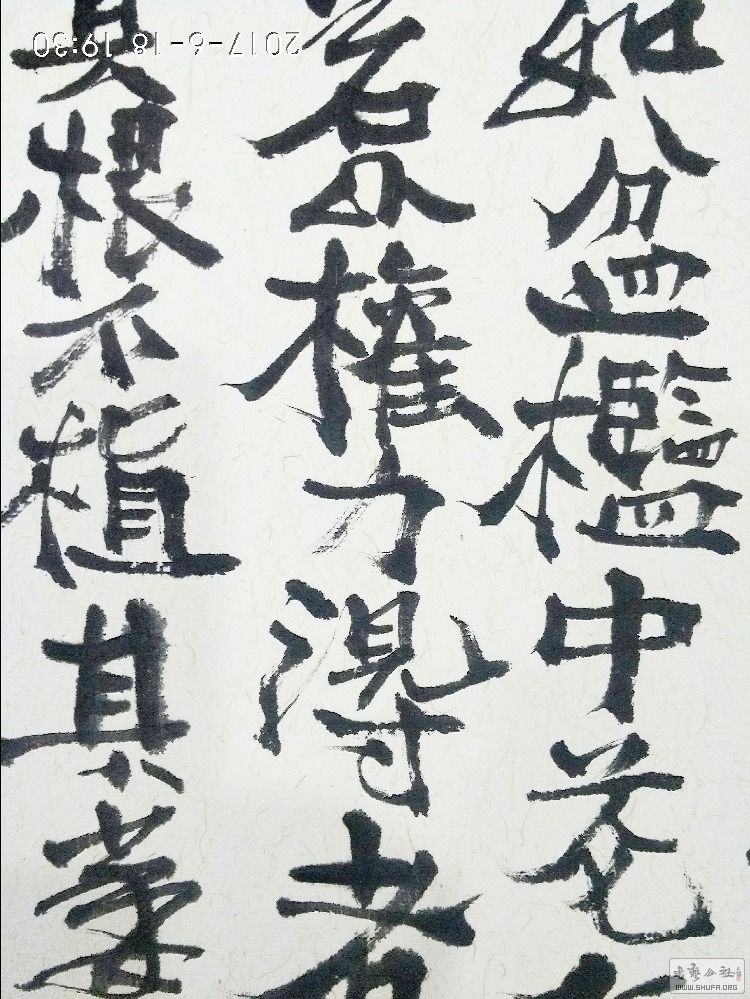 如盆檻中花
若以權力得者
其根不植其萎
2017-6-18 19:30
书艺公社
WWW.SHUFA.ORG